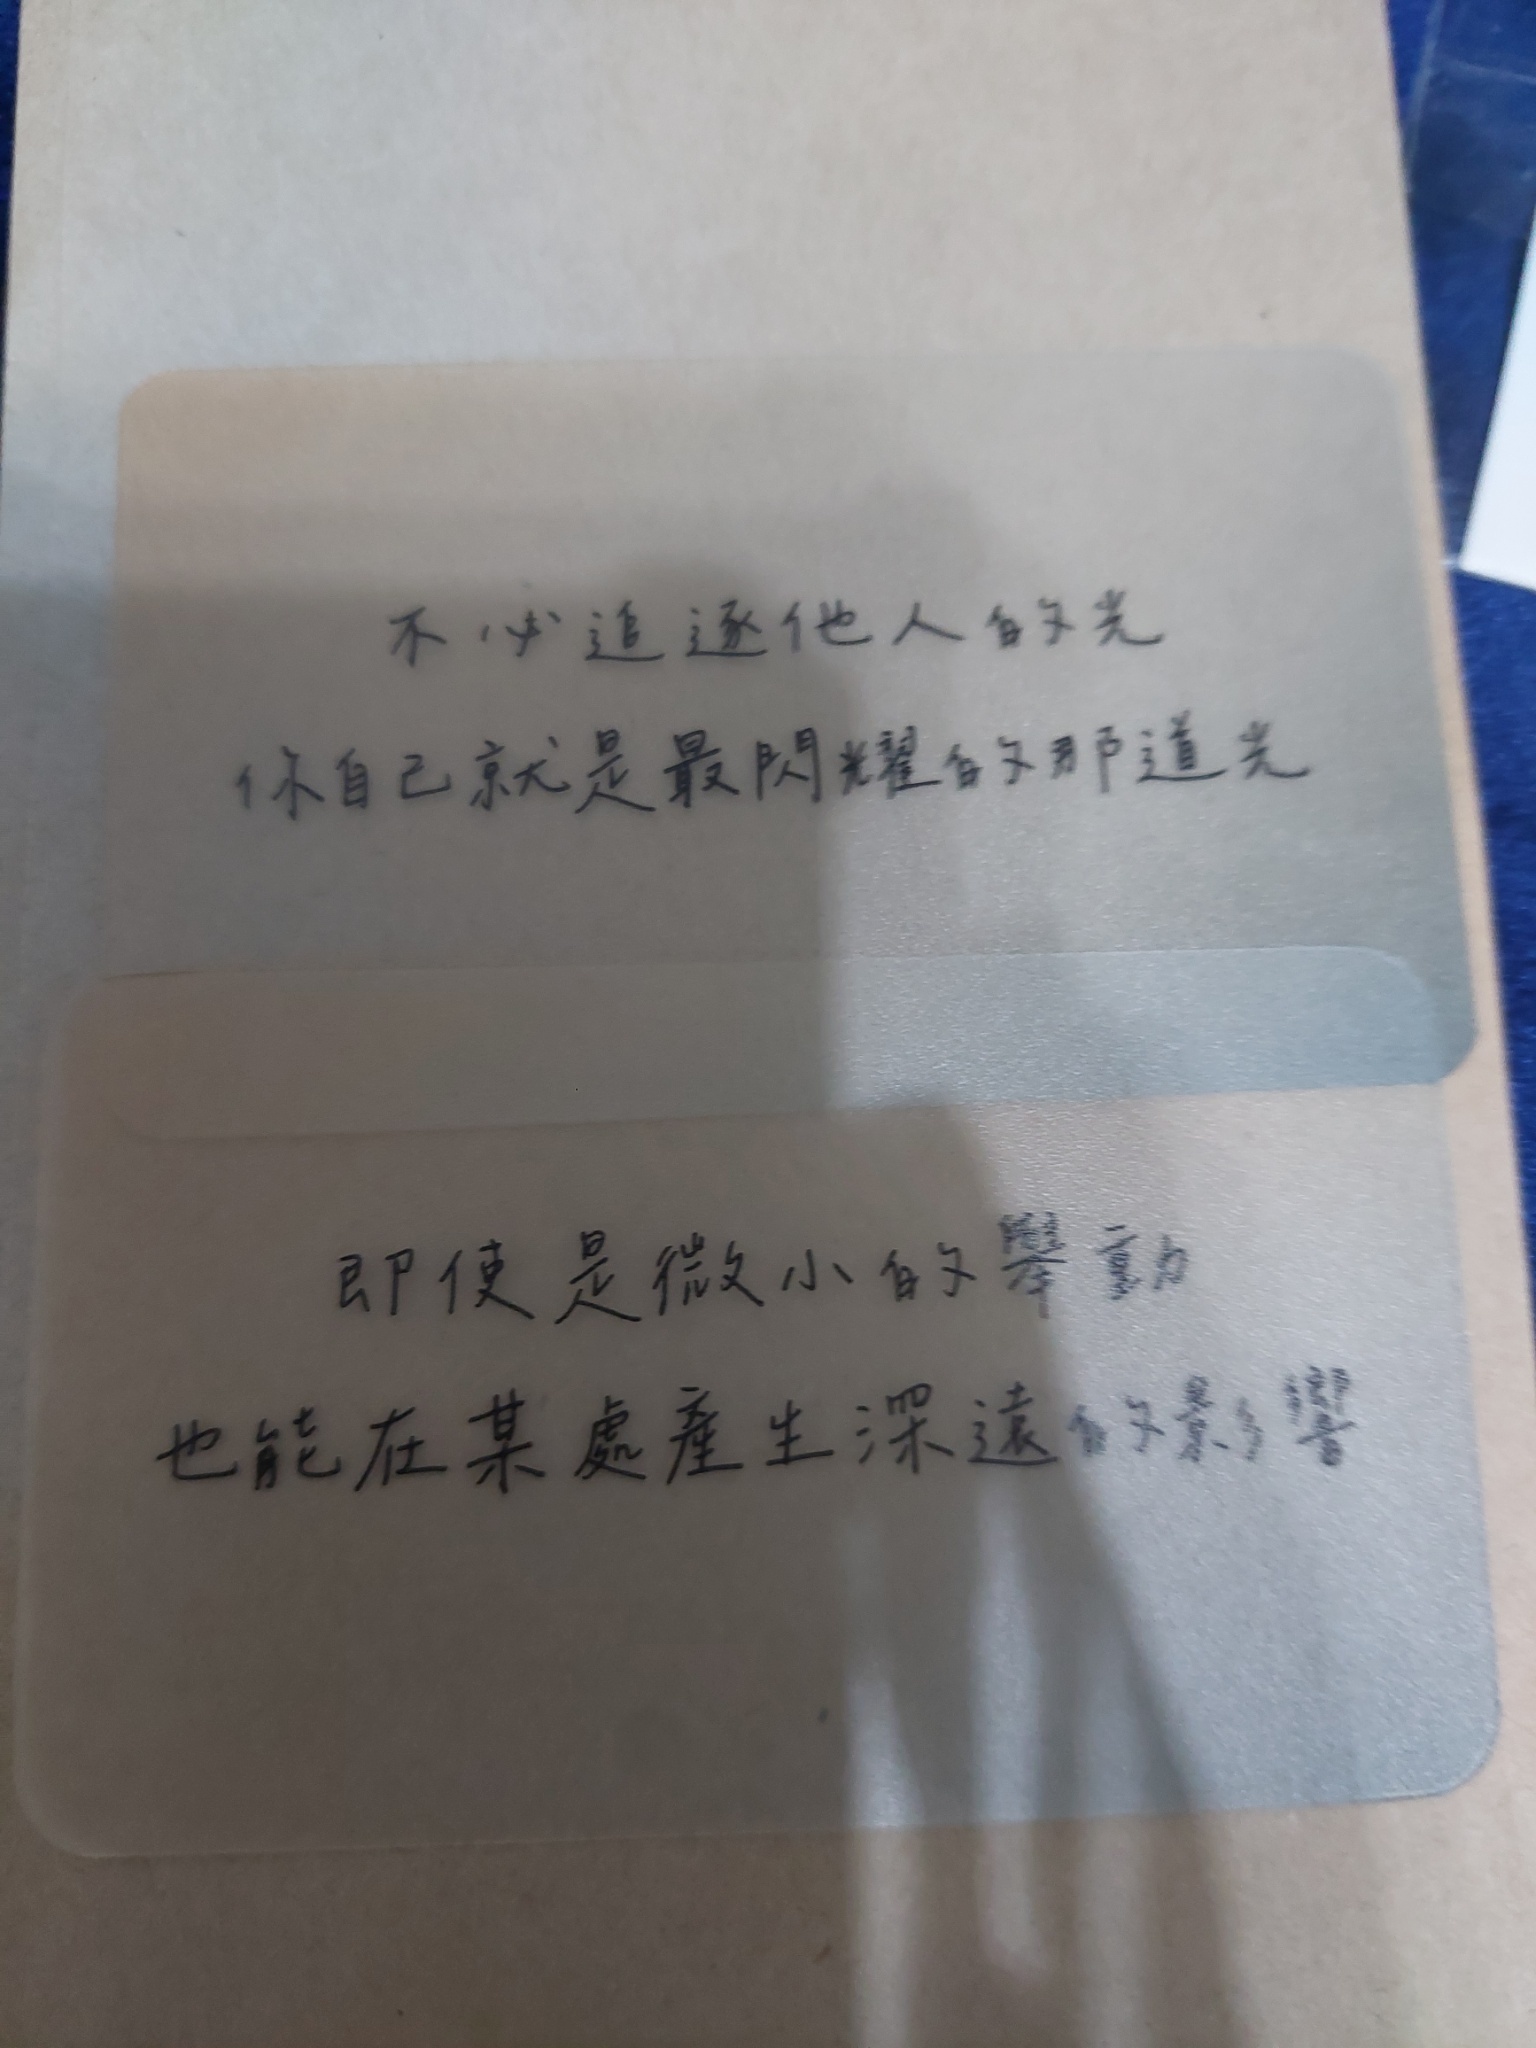 不必追逐他人的光
你自己就是最閃耀的那道光
即使是微小的舉動
也能在某處產生深遠的影響